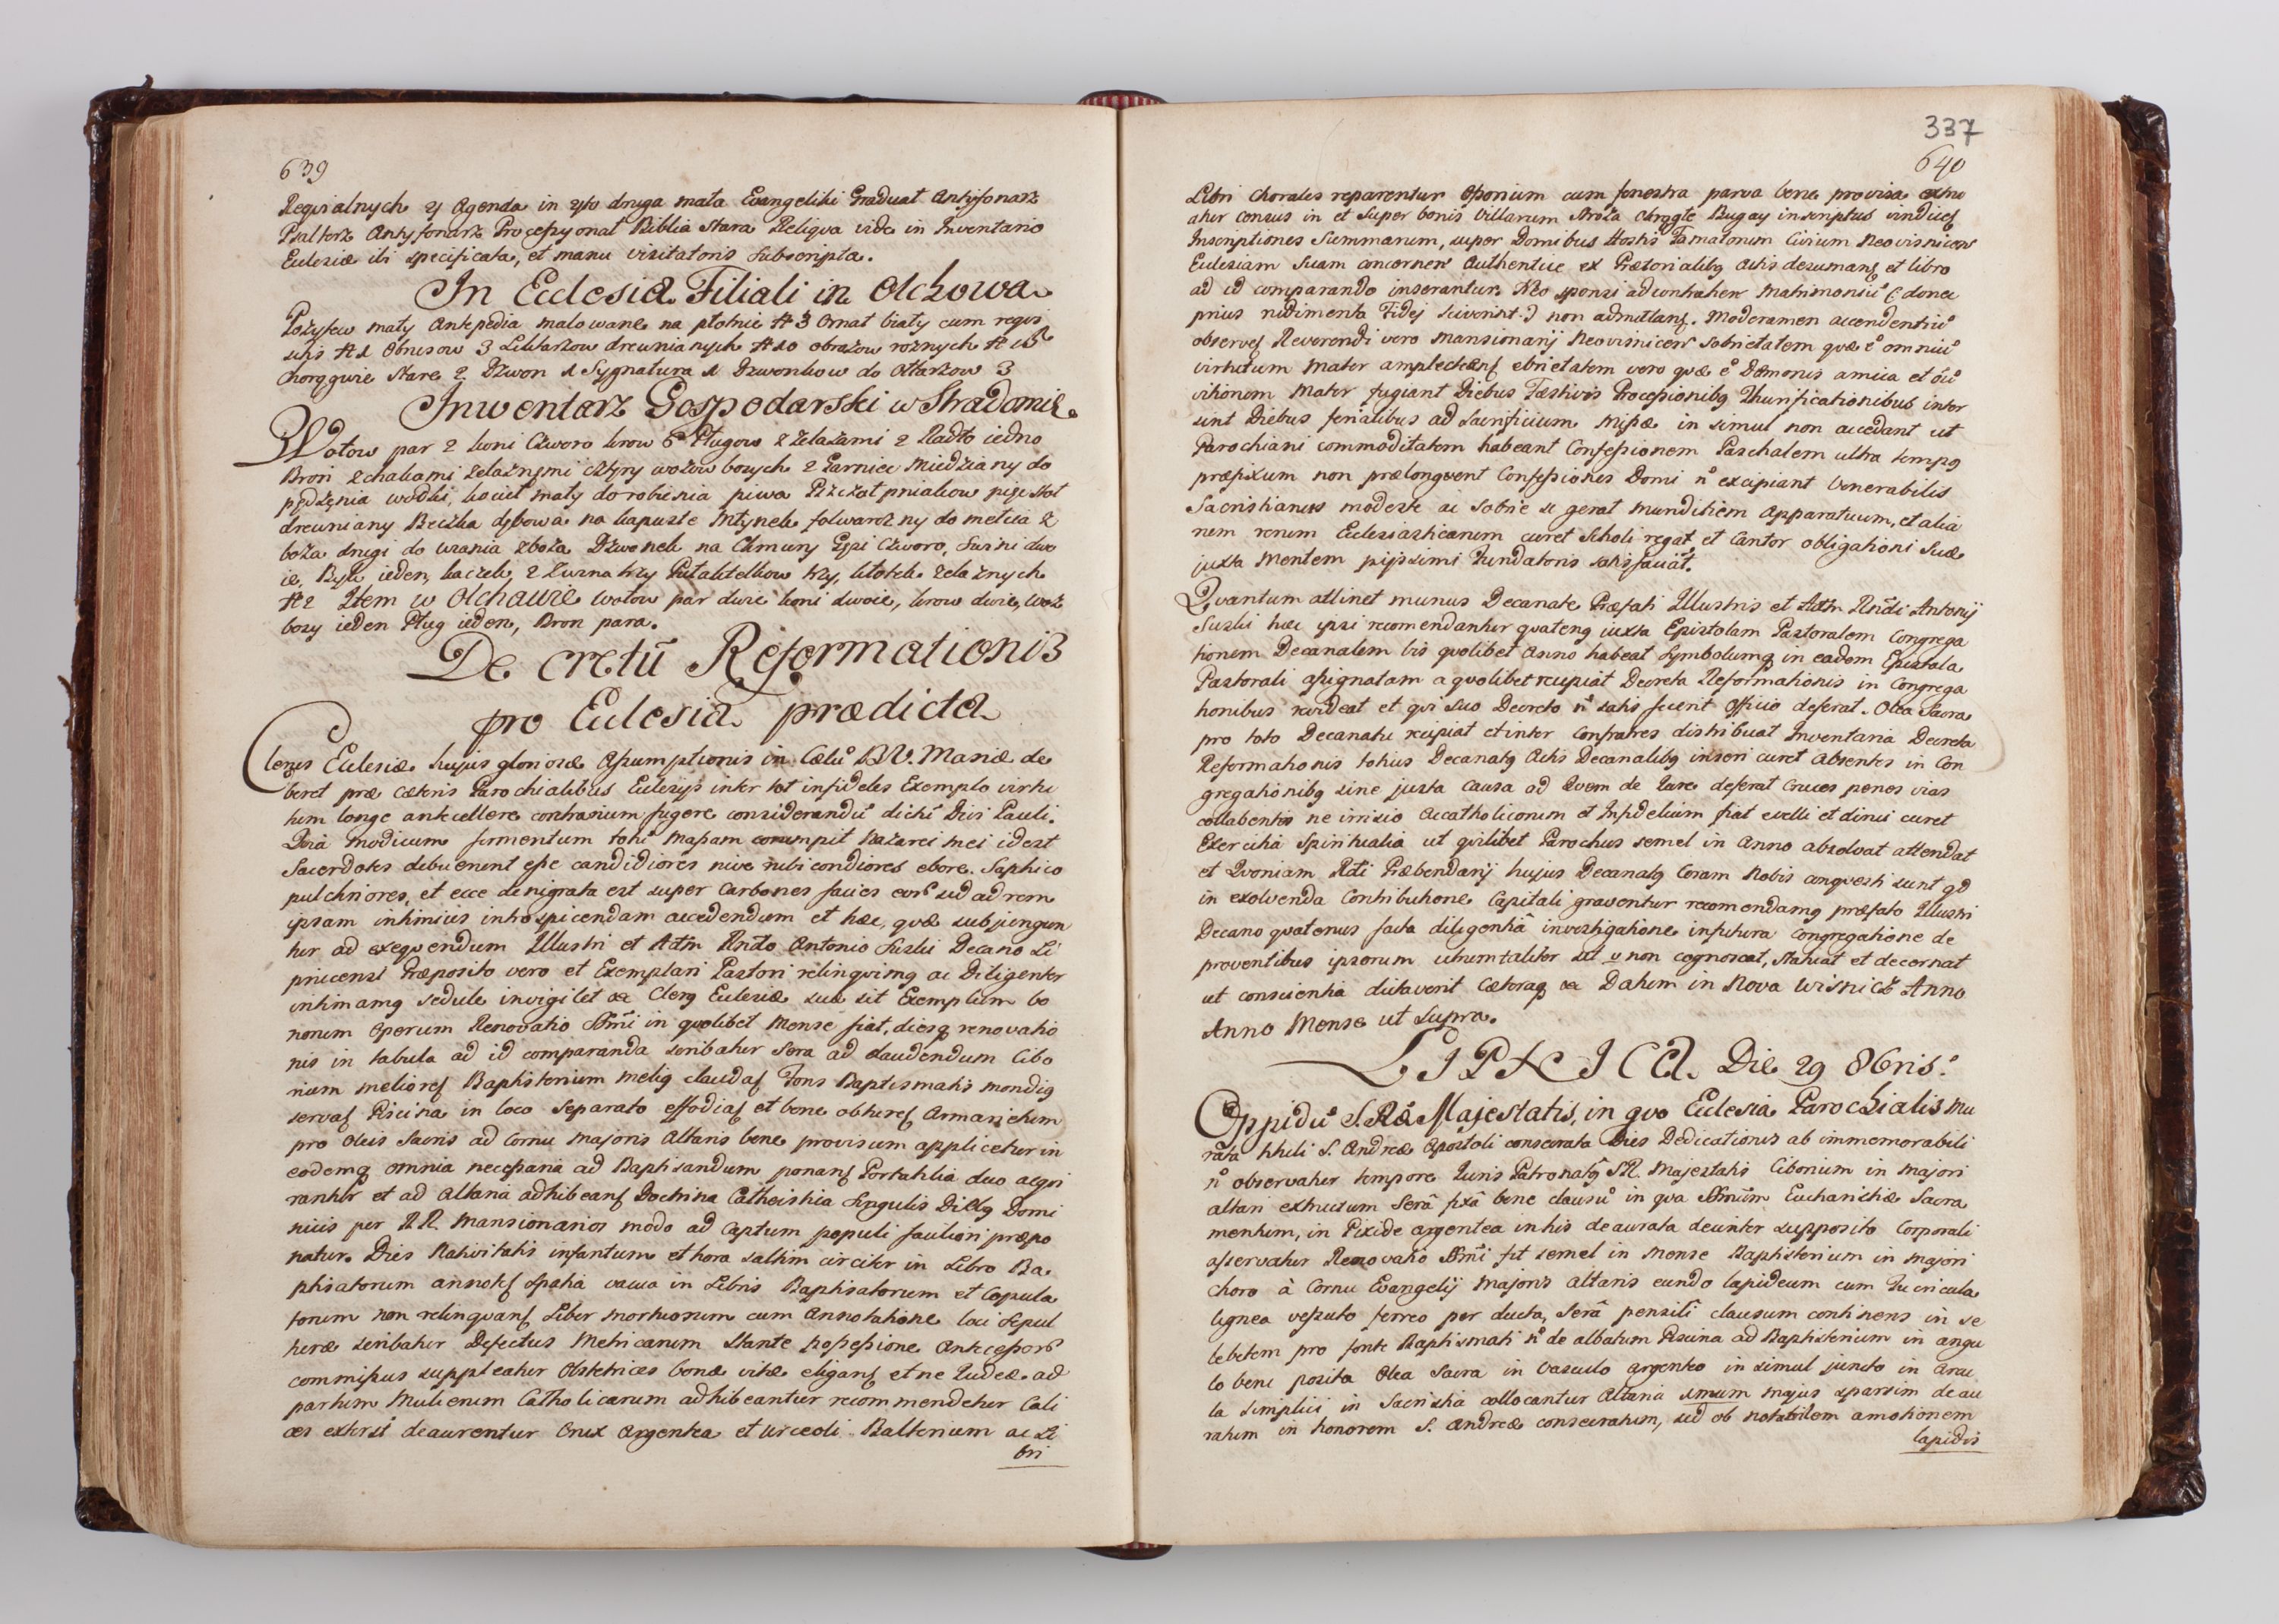 639
Reqvialnych y Agenda in 4to druga mała Evangeliki Graduał Antyfonarz
Psałterz Antyfonarz Processyonał Biblia stara Reliqva vide in Inventario
Eclesiæ ibi specificata, et manu visitatoris subscripta.
In Ecclesia Filiali in Olchowa
Pozytew mały Antepedia malowane na płotnie # 3 Ornat biały cum reqvi
sitis # 1 Obrusow 3 Lichtarzow drewnianych # 10 obrazow roznych #
Chorągwie stare 2 Dzwon 1 Sygnatura 1 Dzwonkow do Ołtarzow 3
Inwentarz Gospodarski w Stradomie
Wołow par 2 koni Czworo krow 6 Pługow z żelazami 2 Radło iedno
Bron z hakami zelaznymi cztyry wozow bosych 2 Garniec Miedziany do
pędzenia wodki, kocieł mały do robienia piwa
drewniany Beczka dębowa na kapuste Młynek folwarczny do mełcia z
boża drugi do wiania zboża Dzwonek na Chmury Gęsi czworo, Swini dwo
ie, Byk ieden, kaczek 2 Zurna trzy
# 2 Item w Olchawie wołow par dwie koni dwoie, krow dwie, woz
bosy ieden Pług ieden, Bron para.
Decretũ Reformationis
pro Eclesia prædicta
Clerus Eclesiæ hujus gloriosæ Assumptionis in Cœlũ B.V. Mariæ de
beret præ cæteris Parochialibus Eclesijs inter tot infideles Exemplo virtu
tum longe antecellere contrarium fugere considerandũ dicti Divi Pauli.
Qvia modicum fermentum totũ Massam corrumpit Nazarei mei idest
Sacerdotes debuerunt esse candidiores nive rubicondiores ebore Saphiro
pulchriores, et ecce denigrata est super Carbones facies eorũ sed ad rem
ipsam intimius introspiciendam accedendum et hæc, quæ subjungun
tur ad exeqvendum Illustri et Adm Rndo Antonio Suski Decano Li
pnicensi Præposito vero et Exemplari Pastori relinqvimq ac Diligenter
intimamq sedule invigilet ac Clerq Eclesiæ suæ sit Exemplum bo
norum Operum Renovatio SSmi in qvolibet Mense fiat, diesq renovatio
nis in tabula ad id comparanda scribatur Sera ad claudendum Cibo
rium melior Baptisterium meliq claudat Fons Baptismatis mondiq
servat Piscina in loco separato effodiat et bene obturet Armarietum
pro Oleis Sacris ad Cornu Majoris Altaris bene provisum applicetur in
eodemq omnia necessaria ad Baptisandum ponant Portatilia duo aeqvi
rantur et ad Altaria adhibeant Doctrina Catheistica Singulis Dieby Domi
nicis per RR. Mansionarios modo ad Captum populi faciliori propo
natur. Dies Nativitatis infantum et hora saltim circiter in Libro Ba
ptisatorum annotet spatia vacua in Libris Baptisatorum et Copula
torum non relinqvant Liber Mortuorum cum Annotatione loci sepul
turæ scribatur Defectus Metricarum stante possessione Antecessorũ
commissus suppleatur Obstetrices bonæ vitæ eligant et ne Judeæ ad
partum Mulierum Catholicarum adhibeantur recommendetur Cali
ces deaurentur Crux Argentea et urceoli Balterium ac Li
bri
337
640
Libri Chorales reparentur Oporium cum fenestra parva bene provisa extru
atur census in et super bonis Villarum Stroża Chrggle Bugay inscriptus
Inscriptiones Summarum, super Domibus Hortis Famatorum Civium Neovisnicen
Eclesiam Suam concernen Authentice ex Prætorialibq Actis desumant et libro
ad id comparando inserantur. Neo sponsi ad contrahen Matrimoniũ (: donec
prius rudimenta Fidej sciverint :) non admittant. Moderamen accendentiũ
observet Reverendi vero Mansionarij Neovisnicen Sobrietatem qvæ ẽ omniũ
virtutum Mater amplectent ebrietatem vero qvæ ẽ Dæmonis amica et oiũ
vitiorum Mater fugiant Diebus Festivis Processionibq Thurificationibus inter
sint Diebus ferialibus ad Sacrificium Missæ in simul non accedant ut
Parochiani commoditatem habeant Confessionem Paschalem ultra tempq
præfixum non prælongvent Confessiones Domi ñ excipiant Venerabilis
Sacristianus modeste ac Sobrie se gerat munditiem Apparatuum, et alia
rum rerum Eclesiasticarum curet Scholi regat et Cantor obligationi Suæ
juxta Mentem pijssimi Fundatoris satisfaciat.
Qvantum attinet munus Decanale Præfati Illustris et Adm Rndi Antonij
Suski hæc ipsi recomendantur qvatenq juxta Epistolam Pastoralem Congrega
tionem Decanalem bis qvolibet Anno habeat Symbolumq in eadem Epistola
Pastorali assignatam a qvolibet recipiat Decreta Reformationis in Congrega
tionibus revideat et qvi Suo Decreto ñ satis fecerit Officio deferat. Olea Sacra
pro toto Decanatu recipiat et inter Confratres distribuat Inventaria Decreta
Reformationis totius Decanatq Actis Decanalibq inseri curet Absentes in Con
gregationibq sine justa Causa ad Qvem de Jure deferat Cruces penes vias
collabentes ne irrisio Accatholicorum et Infidelium fiat evelli et dirui curet
Exercitia Spiritualia ut qvilibet Parochus semel in Anno absolvat attendat
et Qvoniam Rdi Præbendarij hujus Decanatq Coram Nobis conqvesti sunt qd
in exolvenda Contributione Capitali graventur recomendamq præfato Illustri
Decano qvatenus facta diligenti investigatione in futura Congregatione de
proventibus ipsorum utrum taliter sit v non cognoscat, Statuat et decernat
ut conscientia dictaverit Cæteraq &c Datum in Nova Wisnicz Anno
Anno Mense ut Supra.
LIPNICA Die 29 8bris.
Oppidũ S. Ræ Majestatis, in qvo Eclesia Parochialis Mu
rata tituli S. Andreæ Apostoli consecrata Dies Dedicationis ab immemorabili
ñ observatur tempore Juris Patronatq SR. Majestatis Ciborium in majori
altari extructum Sera fixa bene clausũ in qva SSmũm Eucharistiæ Sacra
mentum, in Pixide argentea intus deaurata decenter supposito Corporali
asservatur Renovatio SSmi fit semel in Mense Baptisterium in majori
choro à Cornu Evangelij Majoris altaris eundo lapideum cum
lignea ferreo per ducta, Serâ pensili clausum continens in se
lebetem pro fonte Baptismati ñ de albatum Piscina ad Baptisterium in angu
lo bene posita Olea Sacra in Vasculo argenteo in simul juncto in Arcu
la simplici in Sacristia collocantur Altaria unum majus sparsim deau
ratum in honorem S. Andreæ consecratum, sed ob notabilem amotionem
lapidis